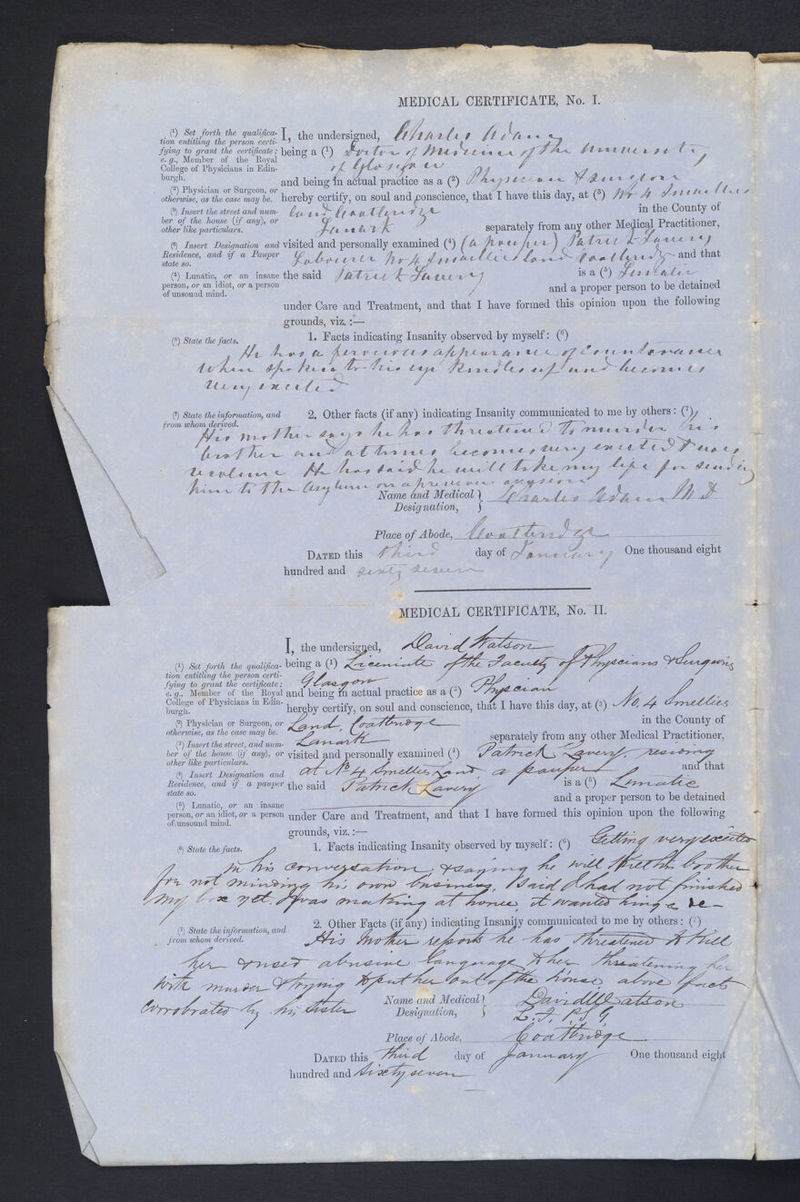 MEDICAL CERTIFICATE, No. I.
(¹) Set forth the qualifica-
tion entitling the person certi-
fying to grant the certificate;
e. g., Member of the Royal
College of Physicians in Edin-
burgh.
(²) Physician or Surgeon, or
otherwise, as the case may be.
(³) Insert the street and num-
ber of the house (if any), or
other like particulars.
(⁴) Insert Designation and
Residence, and if a Pauper
state so.
(⁵) Lunatic, or an insane
person, or an idiot, or a person
of unsound mind.
I, the undersigned, Charles Adam
being a (¹) Doctor of Medicine of the University
of Glasgow
and being in actual practice as a (²) Physician & Surgeon
hereby certify, on soul and conscience, that I have this day, at (³) No 4 Smellies
Land Coatbridge in the County of
Lanark separately from any other Medical Practitioner,
visited and personally examined (⁴) (a pauper) Patrick Lavery
Labourer No 4 Smellies Land Coatbridge and that
the said Patrick Lavery is a (⁵) Lunatic
and a proper person to be detained
under Care and Treatment, and that I have formed this opinion upon the following
grounds, viz.:—
(⁶) State the facts.
1. Facts indicating Insanity observed by myself: (⁶)
He has a appearance of countenance
when spoken to his eye kindles up and becomes
very excited
(⁷) State the information, and
from whom derived.
2. Other facts (if any) indicating Insanity communicated to me by others: (⁷)
His mother says he has threatened to murder his
brother and at times becomes very excited & uses
violence He has said he will take my life for sending
him to the Asylum on a previous occasion
Name and Medical Designation, Charles Adam M D
Place of Abode, Coatbridge
DATED this third day of January One thousand eight
hundred and sixty seven
MEDICAL CERTIFICATE, No. II.
(¹) Set forth the qualifica-
tion entitling the person certi-
fying to grant the certificate;
e. g., Member of the Royal
College of Physicians in Edin-
burgh.
(²) Physician or Surgeon, or
otherwise, as the case may be.
(³) Insert the street, and num-
ber of the house (if any), or
other like particulars.
(⁴) Insert Designation and
Residence, and if a pauper
state so.
(⁵) Lunatic, or an insane
person, or an idiot, or a person
of unsound mind.
I, the undersigned, David Watson
being a (¹) Licentiate of the Faculty of Physcians & Surgeons
Glasgow
and being in actual practice as a (²) Physcian
hereby certify, on soul and conscience, that I have this day, at (³) No. 4 Smellies
Land, Coatbridge in the County of
Lanark separately from any other Medical Practitioner,
visited and personally examined (⁴) Patrick Lavery, residing
at No 4 Smellies Land, a pauper and that
the said Patrick Lavery is a (⁵) Lunatic
and a proper person to be detained
under Care and Treatment, and that I have formed this opinion upon the following
grounds, viz.:—
(⁶) State the facts.
1. Facts indicating Insanity observed by myself: (⁶) Getting very excited
in his conversation & saying he will his brother
for not minding his own business, Said I had not finished
my box yet. I was making at home it wanted hinge
(⁷) State the information, and
from whom derived.
2. Other Facts (if any) indicating Insanity communicated to me by others: (⁷)
His Mother reports he has threatened to kill
her & used abusive language to her threatening her
with murder & trying to put her out of the house, above facts
corrobrated by his sister
Name and Medical Designation, David Watson
L. F. P. S. G
Place of Abode, Coatbridge
DATED this third day of January One thousand eight
hundred and Sixty seven